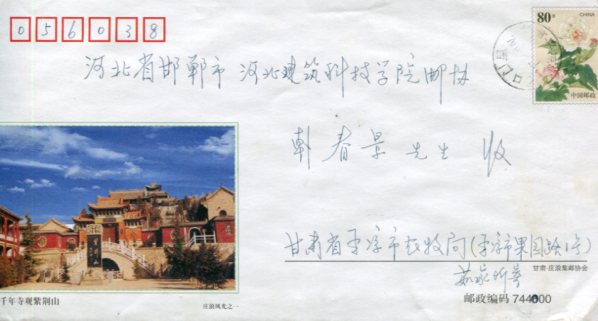 056038
80分
CHINA
中国邮政
河北省邯郸市 河北建筑科技学院邮协
韩春景 先生 收
甘肃省平凉市农牧局(平凉市果园路1号)
甘肃·庄浪集邮协会
邮政编码 744000
千年寺观紫荆山
庄浪风光之一